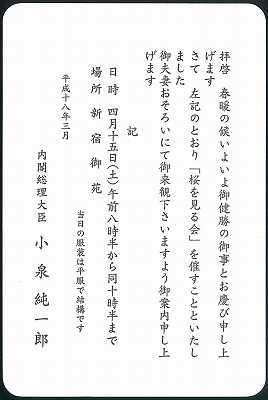 拝啓　春暖の候いよいよ御健勝の御事とお慶び申し上
げます
さて　左記のとおり「桜を見る会」を催すことといたし
ました
御夫妻おそろいにて御来観下さいますよう御案内申し上
げます
記
日時　四月十五日(土)午前八時半から同十時半まで
場所　新宿御苑
当日の服装は平服で結構です
平成十八年三月
内閣総理大臣　小泉純一郎